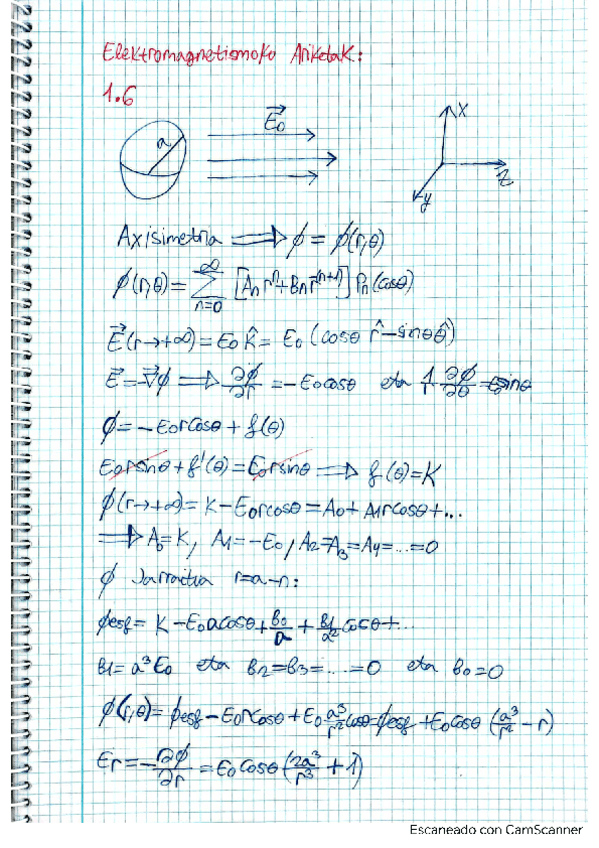 Elektromagnetismoko Ariketak:
1.6
a
E⃗₀
x
z
y
Axisimetria ⟹ ϕ = ϕ(r,θ)
ϕ(r,θ) = ∑_{n=0}^{∞} [Aₙ rⁿ + Bₙ r^{-(n+1)}] Pₙ(cosθ)
E⃗(r→+∞) = E₀ k̂ = E₀ (cosθ r̂ - sinθ θ̂)
E⃗ = -∇⃗ϕ ⟹ ∂ϕ/∂r = -E₀cosθ eta 1/r ∂ϕ/∂θ = E₀sinθ
ϕ = -E₀rcosθ + f(θ)
E₀rsinθ + f'(θ) = E₀rsinθ ⟹ f(θ) = K
ϕ(r→+∞) = K - E₀rcosθ = A₀ + A₁rcosθ + ...
⟹ A₀ = K, A₁ = -E₀, A₂ = A₃ = A₄ = ... = 0
ϕ Jarraitua r=a-n:
ϕesf = K - E₀acosθ + B₀/a + B₁/a² cosθ + ...
B₁ = a³E₀ eta B₂ = B₃ = ... = 0 eta B₀ = 0
ϕ(r,θ) = ϕesf - E₀rcosθ + E₀ a³/r² cosθ = ϕesf + E₀cosθ (a³/r² - r)
Er = -∂ϕ/∂r = E₀cosθ (2a³/r³ + 1)
Escaneado con CamScanner